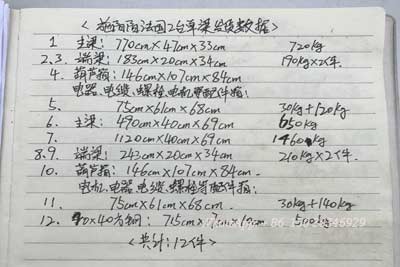 法国2台单梁发货数据>
1 主梁: 770cm×47cm×33cm 720kg
2.3. 端梁: 183cm×20cm×34cm 190kg×2件
4. 葫芦箱: 146cm×107cm×84cm
电器、电缆、螺栓、电机等配件箱:
5. 75cm×61cm×68cm 30kg+120kg
6. 主梁: 490cm×40cm×69cm 650kg
7. 1120cm×40cm×69cm 1460kg
8.9. 端梁: 243cm×20cm×34cm 210kg×2件
10. 葫芦箱: 146cm×107cm×84cm.
电机、电器、电缆、螺栓等配件箱:
11. 75cm×61cm×68cm. 30kg+140kg
12. 40×40方钢: 715cm× 500kg
<共计:12件>